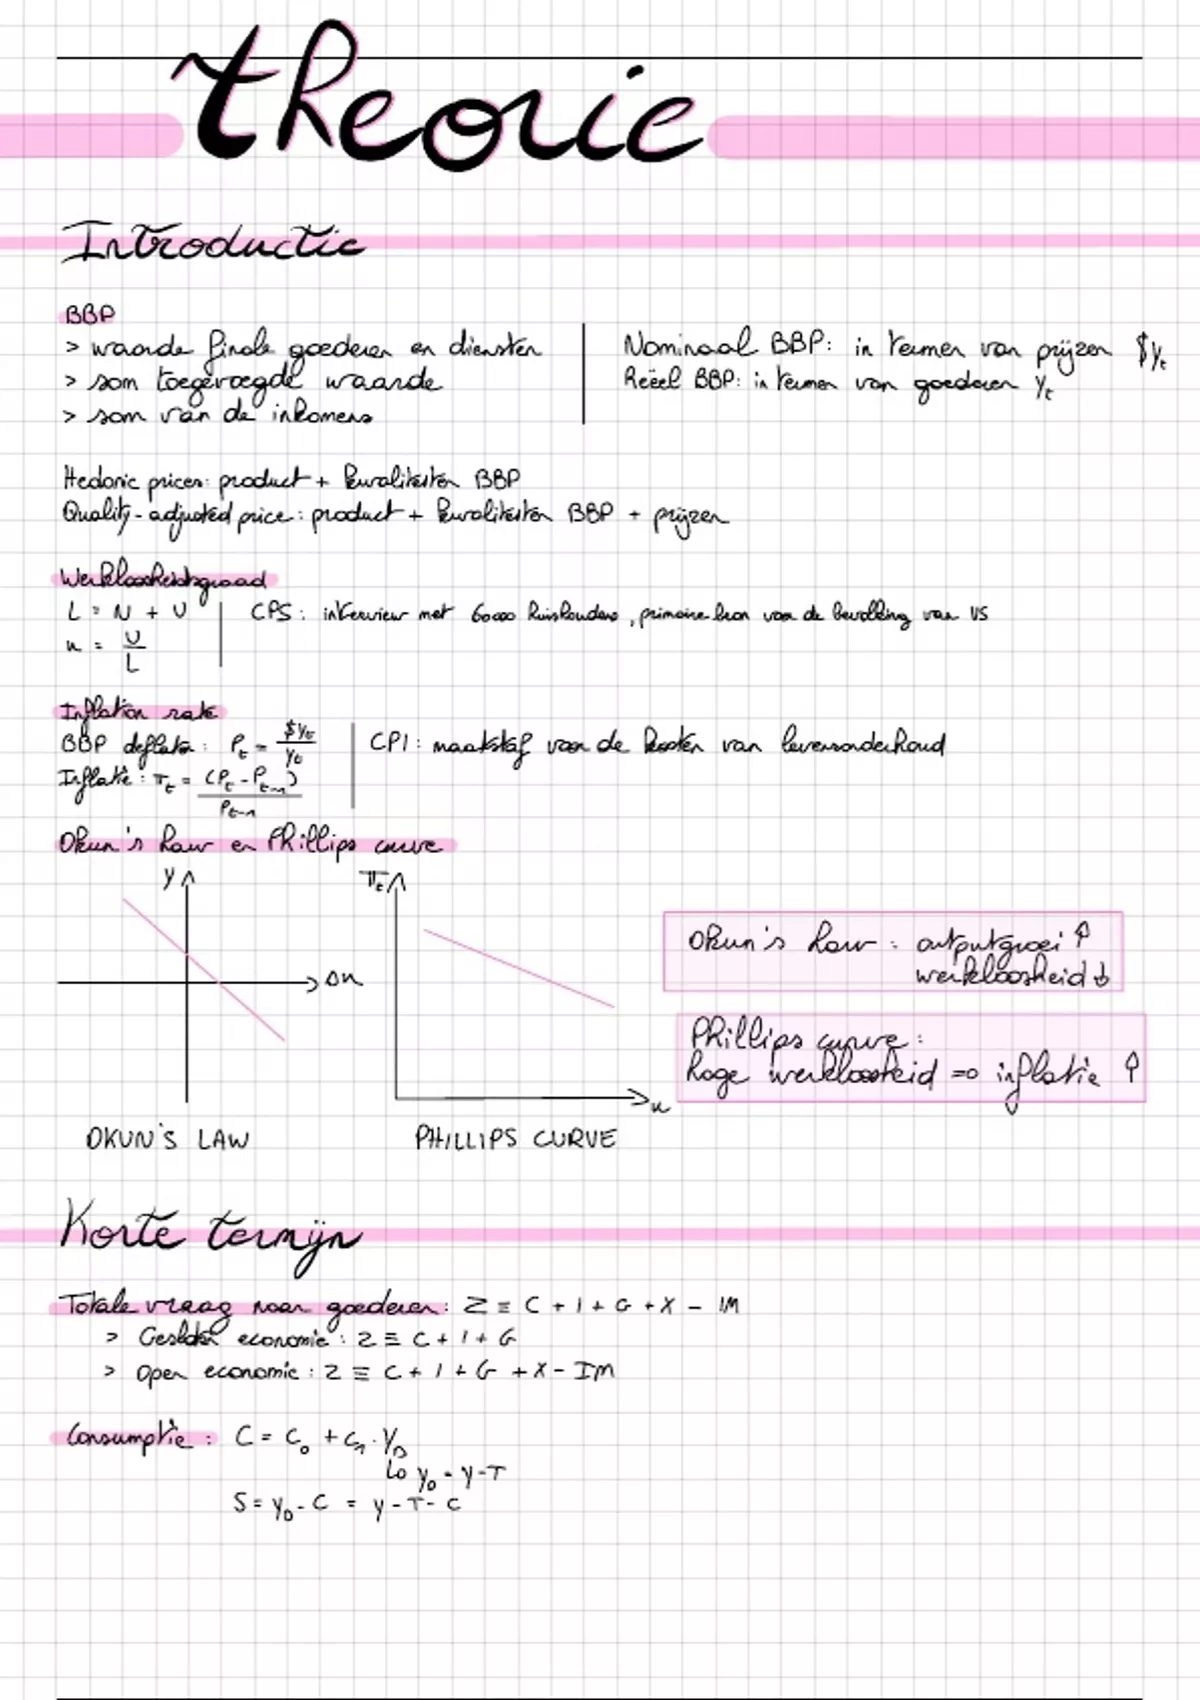 theorie
Introductie
BBP
> waarde finale goederen en diensten
> som toegevoegde waarde
> som van de inkomens
Nominaal BBP: in termen van prijzen $Yt
Reëel BBP: in termen van goederen Yt
Hedonic prices: product + kwaliteiten BBP
Quality-adjusted price: product + kwaliteiten BBP + prijzen
Werkloosheidsgraad
L = N + U
u = U/L
CPS: interview met 60000 huishoudens, primaire bron van de bevolking van US
Inflation rate
BBP deflator: Pt = $Yt/Yt
Inflatie: πt = (Pt - Pt-1)/Pt-1
CPI: maatstaf voor de kosten van levensonderhoud
Okun's law en Phillips curve
y
Δu
OKUN'S LAW
πt
u
PHILLIPS CURVE
Okun's law: outputgroei ↑
werkloosheid ↓
Phillips curve:
hoge werkloosheid => inflatie ↑
Korte termijn
Totale vraag naar goederen: Z ≡ C + I + G + X - IM
> Gesloten economie: Z ≡ C + I + G
> Open economie: Z ≡ C + I + G + X - IM
Consumptie: C = c0 + c1 · YD
↳ YD = Y-T
S = YD - C = Y - T - C